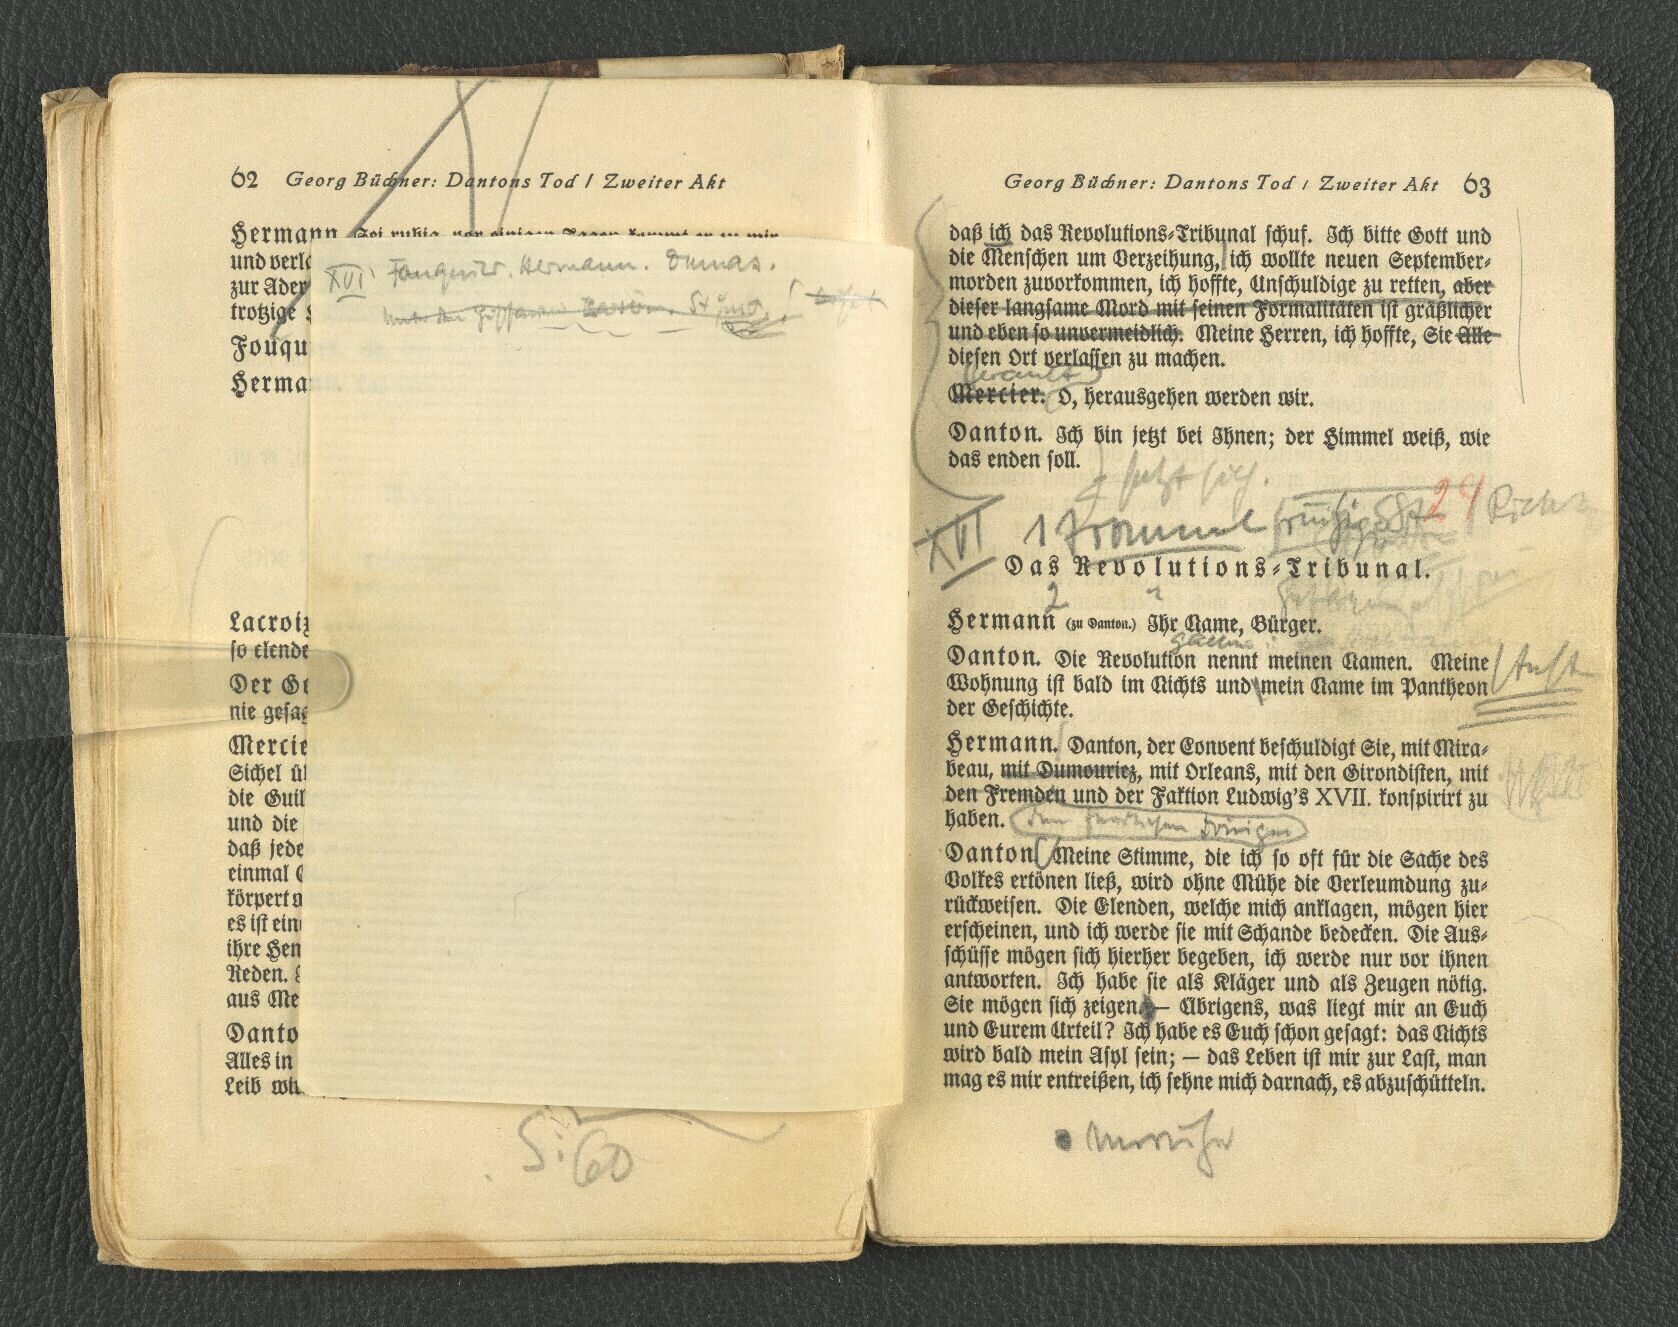 62 Georg Büchner: Dantons Tod / Zweiter Akt
Hermann. Sei ruhig, vor einigen Tagen kommt er zu mir
und verla
zur Ader
trotzige
Fouqu
Herma
XVI Fouquier. Hermann. Dumas.
Lacroix
so elende
Der Ge
nie gesag
Mercie
Sichel ü
die Guil
und die
daß jede
einmal
körpert
es ist ein
ihre Hen
Reden.
aus Me
Danto
Alles in
Leib wi
S. 60
Georg Büchner: Dantons Tod / Zweiter Akt 63
daß ich das Revolutions-Tribunal schuf. Ich bitte Gott und
die Menschen um Verzeihung, ich wollte neuen September-
morden zuvorkommen, ich hoffte, Unschuldige zu retten, aber
dieser langsame Mord mit seinen Formalitäten ist gräßlicher
und eben so unvermeidlich. Meine Herren, ich hoffte, Sie Alle
diesen Ort verlassen zu machen.
Herault
Mercier. O, herausgehen werden wir.
Danton. Ich bin jetzt bei Ihnen; der Himmel weiß, wie
das enden soll.
setzt sich.
XVI 1 Trommel 24
Das Revolutions-Tribunal.
2
Hermann (zu Danton.) Ihr Name, Bürger.
Danton. Die Revolution nennt meinen Namen. Meine
Wohnung ist bald im Nichts und mein Name im Pantheon
der Geschichte.
Hermann. Danton, der Convent beschuldigt Sie, mit Mira-
beau, mit Dumouriez, mit Orleans, mit den Girondisten, mit
den Fremden und der Faktion Ludwig's XVII. konspirirt zu
haben.
Danton. Meine Stimme, die ich so oft für die Sache des
Volkes ertönen ließ, wird ohne Mühe die Verleumdung zu-
rückweisen. Die Elenden, welche mich anklagen, mögen hier
erscheinen, und ich werde sie mit Schande bedecken. Die Aus-
schüsse mögen sich hierher begeben, ich werde nur vor ihnen
antworten. Ich habe sie als Kläger und als Zeugen nötig.
Sie mögen sich zeigen. — Übrigens, was liegt mir an Euch
und Eurem Urteil? Ich habe es Euch schon gesagt: das Nichts
wird bald mein Asyl sein; — das Leben ist mir zur Last, man
mag es mir entreißen, ich sehne mich darnach, es abzuschütteln.
Unruhe